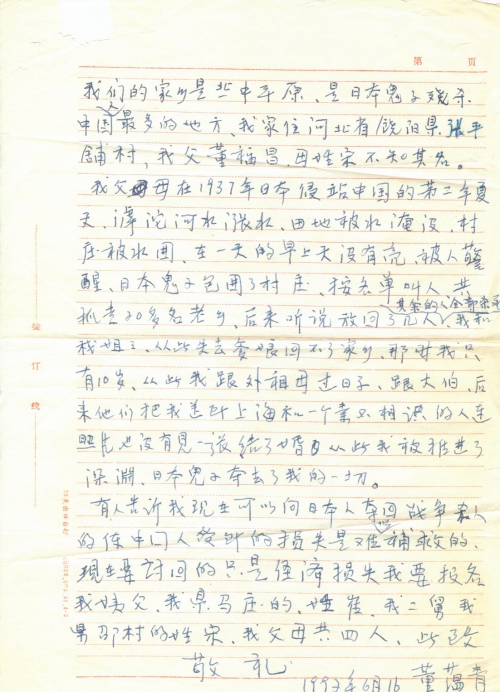 第 页
我们的家乡是冀中平原、是日本鬼子残杀
中国人最多的地方、我家住河北省饶阳県张平
铺村，我父董福昌，母姓宋不知其名。
我父母在1937年日本侵站中国的第二年夏
天、滹沱河水涨水、田地被水淹没，村
庄被水围、在一天的早上天没有亮、被人警
醒、日本鬼子包围了村庄、按名单叫人、共
抓走20多名老乡、后来听说放回了几人、其余的人全部杀害 我和
我姐
从此失去爹娘回不了家乡、那时我只
有10岁、从此我跟外祖母过日子、跟大伯、后
来他们把我送到上海和一个素不相识的人连
照片也没有見一张结了婚 从此我被推进了
深渊、日本鬼子夺去了我的一切。
有人告诉我现在可以向日本人 战争
的使中国人受到的损失是难补救的、
现在要討回的只是经济损失我要报名
我姨父、我県马庄的、姓崔、我二舅我
県邵村的姓宋、我父母共四人、此致
敬礼
董蔼青
1992年6月16
装订线